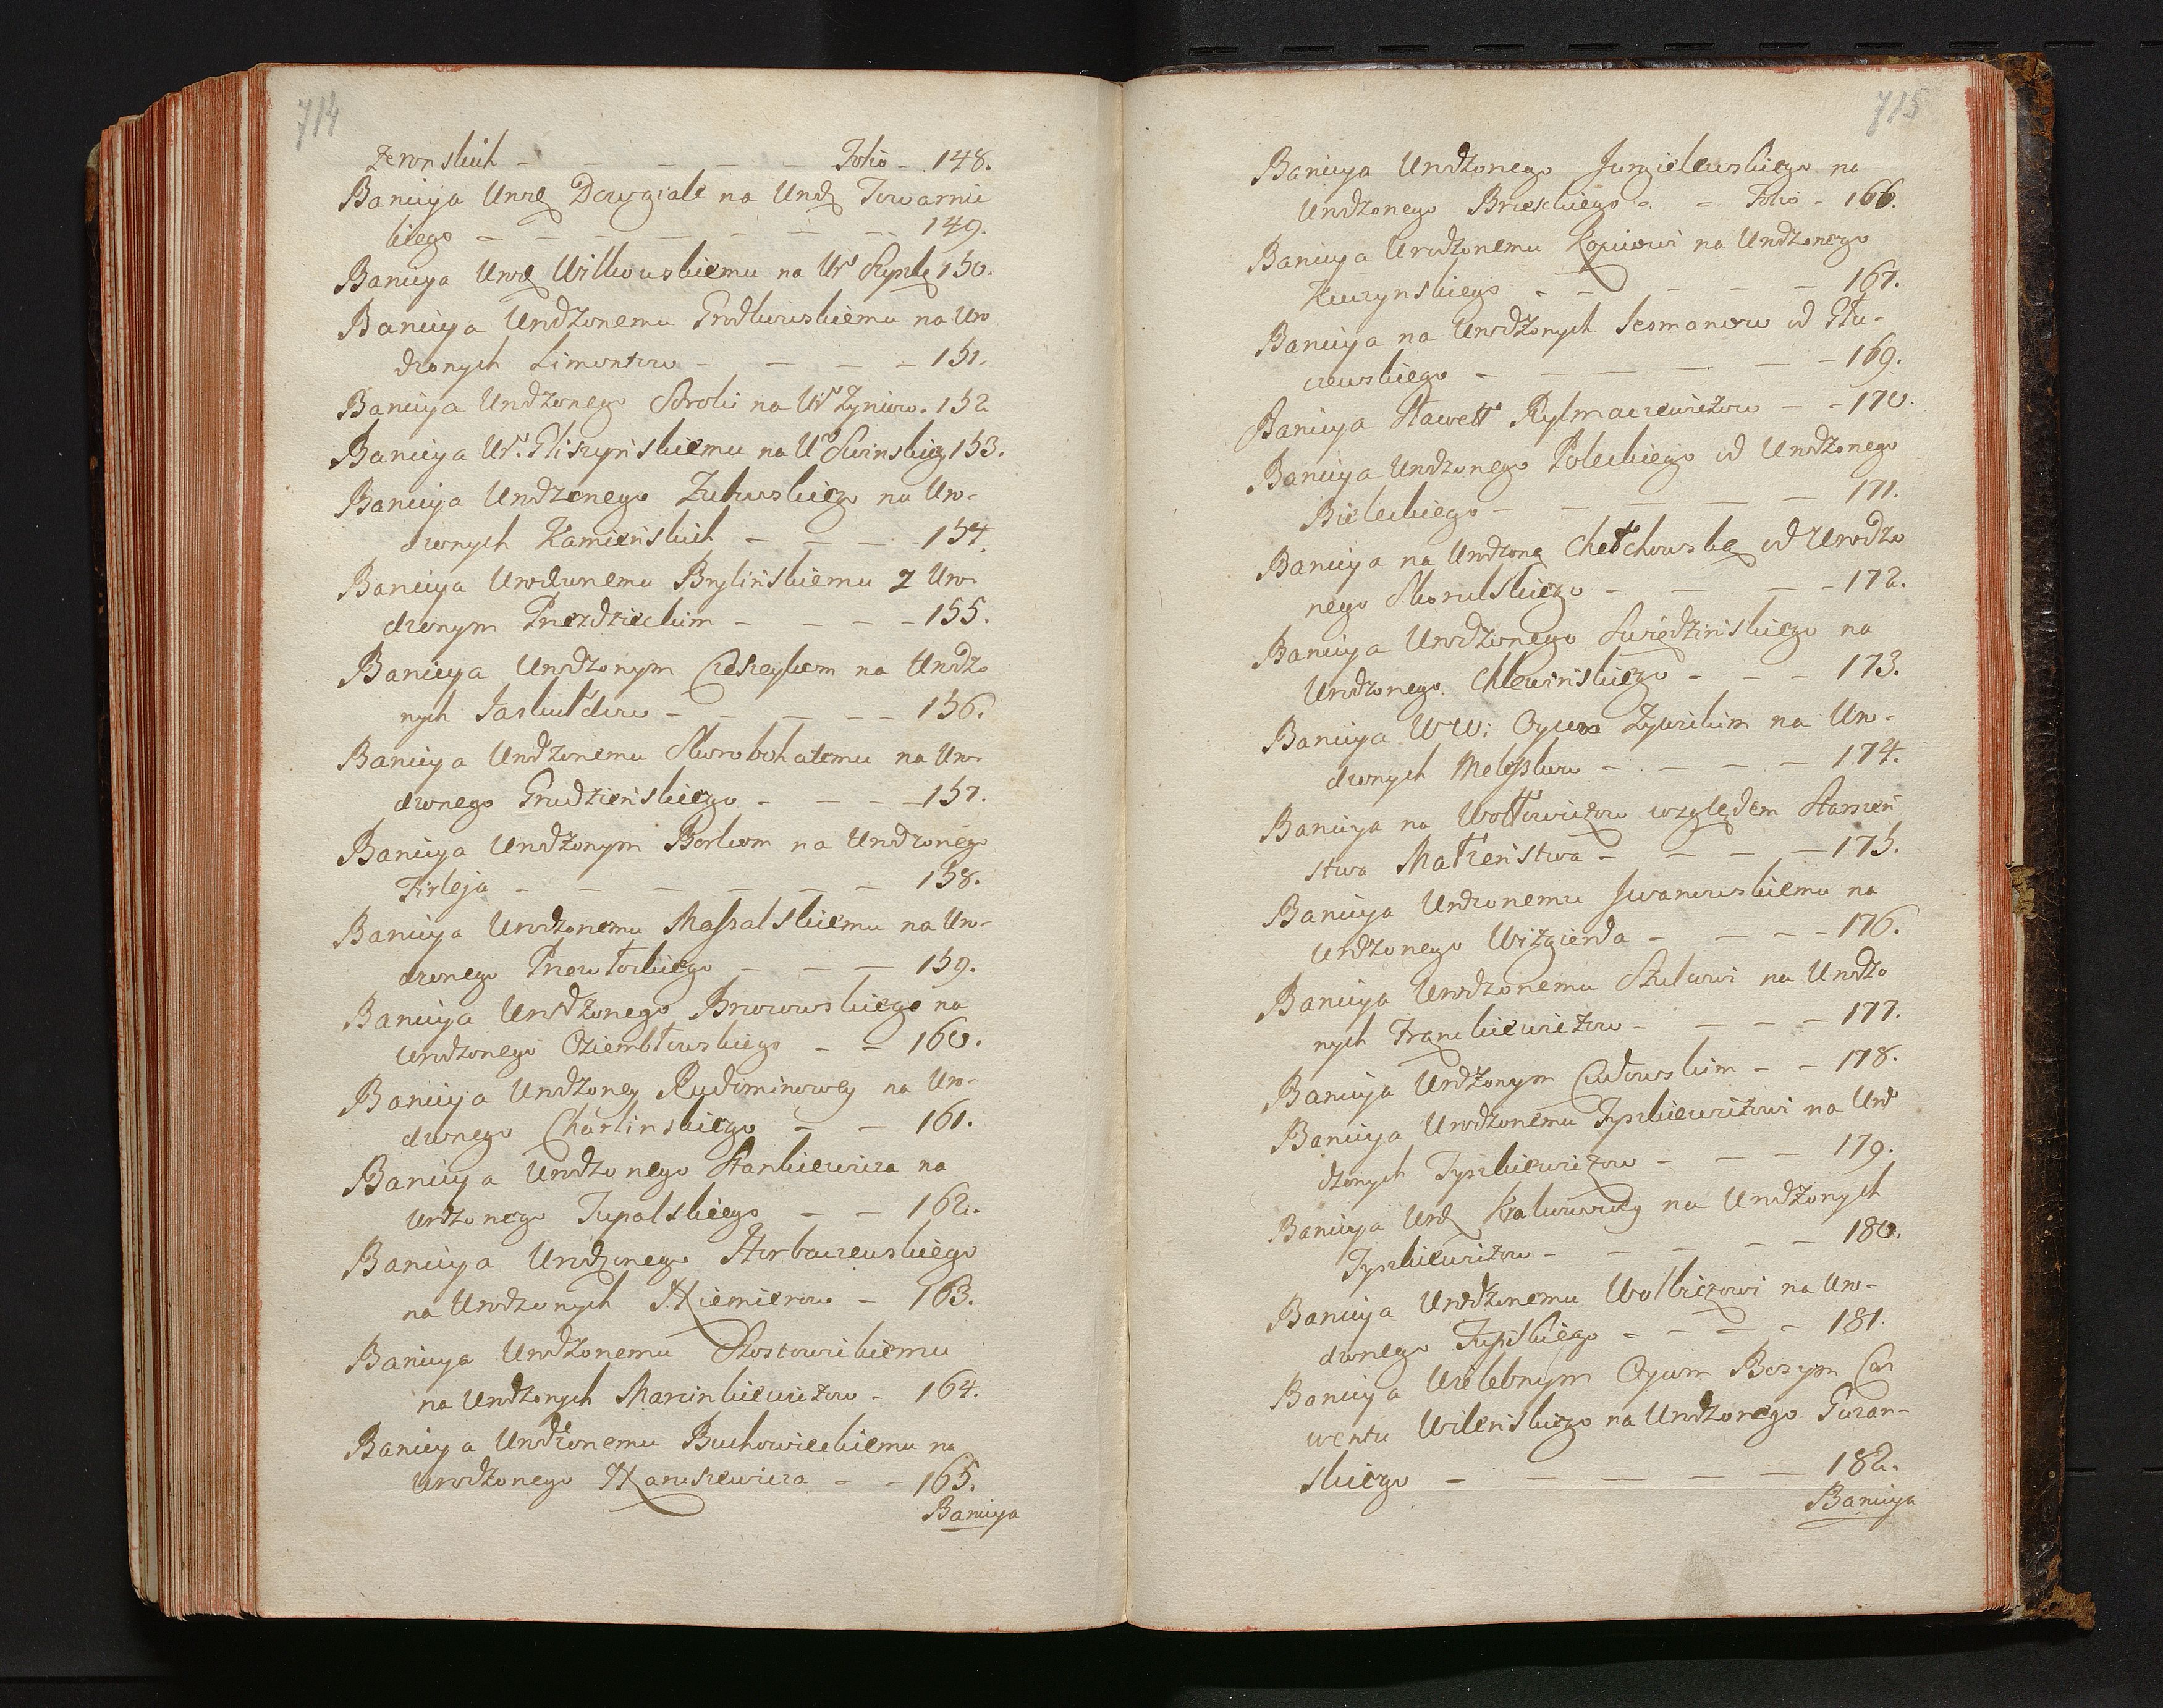 714
zerońskich - - - - - Folio - 148.
Banicya Urodz Dowgiale na Urodz Towarnic
kiego - - - - - - - - 149.
Banicya Urodz Witkowskiemu na Ur Szyszkę 150.
Banicya Urodzonemu Grodkowskiemu na Uro
dzonych Limontow - - - - 151.
Banicya Urodzonego Soroki na Ur Zyniew. 152
Banicya Ur. Gliszyńskiemu na Ur Swinskieg 153.
Banicya Urodzonego Zukowskiego na Uro-
dzonych Kamieńskich - - - - 154.
Banicya Urodzonemu Brylińskiemu z Uro-
dzonym Przezdzieckim - - - - 155.
Banicya Urodzonym Czeszeykom na Urodzo
nych Jaskułdow - - - - - 156.
Banicya Urodzonemu Skorobohatemu na Uro
dzonego Grudzieńskiego - - - - 157.
Banicya Urodzonym Borkom na Urodzonego
Firleja - - - - - - - 158.
Banicya Urodzonemu Massalskiemu na Uro-
dzonego Przewłockiego - - - 159.
Banicya Urodzonego Brzozowskiego na
Urodzonego Oziembłowskiego - - 160.
Banicya Urodzoney Rudominowey na Uro-
dzonego Charlinskiego - - 161.
Banicya Urodzonego Stankiewicza na
Urdzonego Tupalskiego - - 162.
Banicya Urodzonego Horbaczewskiego
na Urodzonych Kiemierow - 163.
Banicya Urodzonemu Szostowickiemu
na Urodzonych Marcinkiewiczow - 164.
Banicya Urodzonemu Buchowieckiemu na
Urodzonego Haruszewicza - - 165.
Banicya
715
Banicya Urodzonego Jurgielewskiego na
Urodzonego Brzeskiego - - Folio - 166.
Banicya Urodzonemu Kociowi na Urodzonego
Kuczynskiego - - - - - 167.
Banicya na Urodzonych Jesmanow od Głu-
czewskiego - - - - - - 169.
Banicya Sławett Rylmaczewiczow - - 170.
Banicya Urodzonego Poleckiego od Urodzonego
Bieleckiego - - - - - 171.
Banicya na Urodzoną Chełchowską od Urodzo
nego Skorulskiego - - - - 172.
Banicya Urodzonego Swiędzińskiego na
Urodzonego Chlewińskiego - - - 173.
Banicya WW: Oycom Zyrwickim na Uro-
dzonych Meleszkow - - - - 174.
Banicya na Wołłowiczow względem Starszeń
stwa Małżeństwa - - - - 175.
Banicya Urdzonemu Jwanowskiemu na
Urdzonego Wizgierda - - - - 176.
Banicya Urodzonemu Szulcowi na Urodzo
nych Franckiewiczow - - - - 177.
Banicya Urdzonym Cudowskim - - 178.
Banicya Urodzonemu Tyszkiewiczowi na Uro
dzonych Tyszkiewiczow - - - 179.
Banicya Urodz Krakowowey na Urodzonych
Tyszkiewiczow - - - - - 180.
Banicya Urodzonemu Wolbiczowi na Uro-
dzonego Tupskiego - - - - 181.
Banicya Wielebnym Oycom Bosym Con
wentu Wileńskiego na Urodzonego Turzan-
skiego - - - - - 182.
Banicya